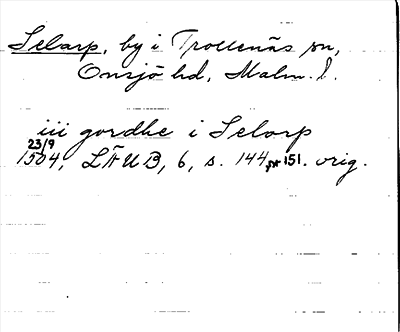 Selarp, by i Trollenäs sn,
Onsjö hd, Malm. l.
iii gordhe i Selorp
23/9
1504, LÄUB, 6, s. 144, nr 151. orig.